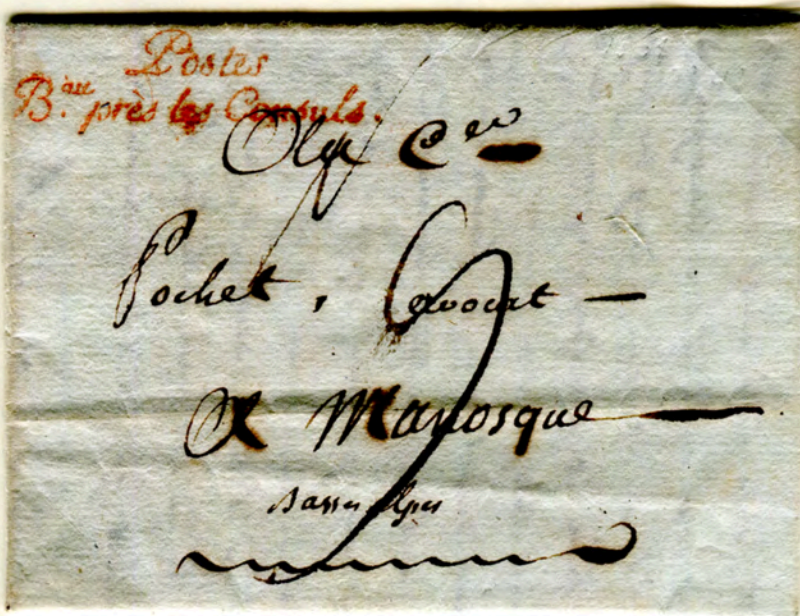 Postes
B.au près les Consuls.
Au Cen
Pochet, avocat —
A Manosque
Basses alpes